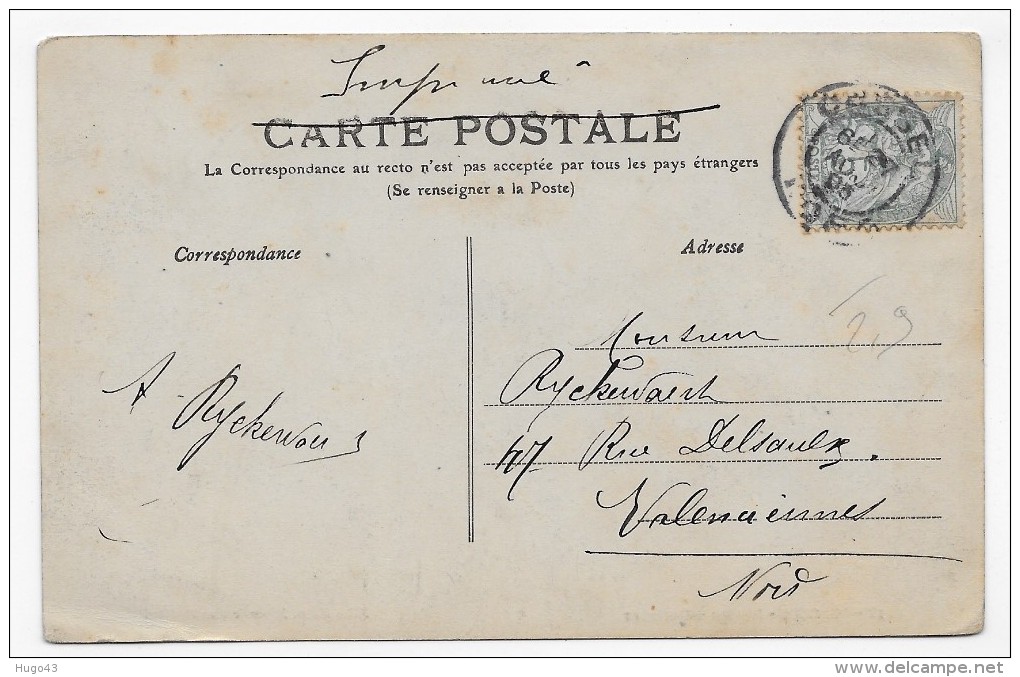 Imprimé
CARTE POSTALE
La Correspondance au recto n'est pas acceptée par tous les pays étrangers
(Se renseigner a la Poste)
Correspondance
Adresse
Monsieur
Ryckewaert
47 Rue Delsaulx.
Valenciennes
Nord
A Ryckewaert
Hugo43
www.delcampe.net